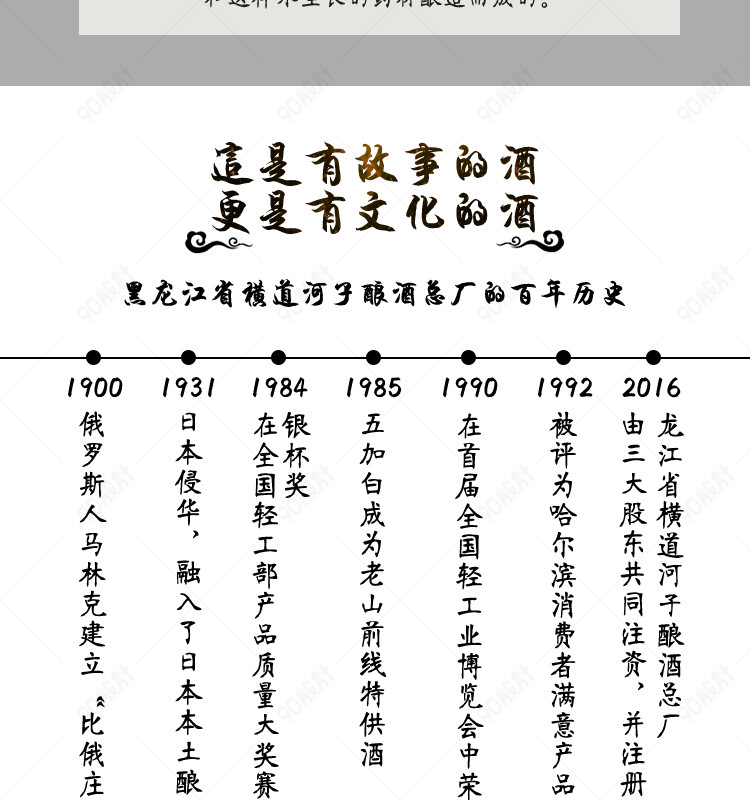 這是有故事的酒
更是有文化的酒
黑龙江省横道河子酿酒总厂的百年历史
1900
俄罗斯人马林克建立“比俄庄
1931
日本侵华，融入了日本本土酿
1984
在全国轻工部产品质量大奖赛
银杯奖
1985
五加白成为老山前线特供酒
1990
在首届全国轻工业博览会中荣
1992
被评为哈尔滨消费者满意产品
2016
由三大股东共同注资，并注册
龙江省横道河子酿酒总厂